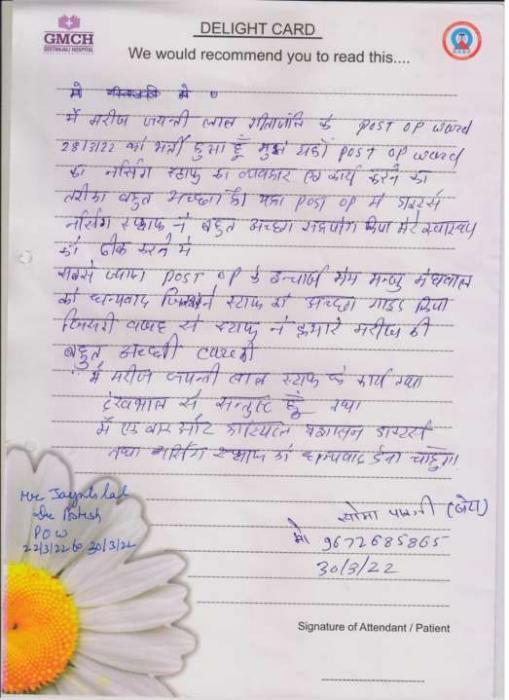 GMCH
GEETANJALI HOSPITAL
DELIGHT CARD
We would recommend you to read this....
में मरीज जयन्ती लाल गीतांजलि के POST OP ward
28/3/22 को भर्ती हुआ हूँ मुझे यहाँ POST OP ward
का नर्सिंग स्टाफ का व्यवहार एवं कार्य करने का
तरीका बहुत अच्छा है। यहा POST OP में डाक्टर्स
नर्सिंग स्टाफ ने बहुत अच्छा सहयोग किया मेरे स्वास्थ्य
को ठीक करने में
सबसे ज्यादा POST OP के इन्चार्ज मेम मन्जु मेघवाल
को धन्यवाद जिन्होंने स्टाफ को अच्छा गाइड किया
जिसकी वजह से स्टाफ ने हमारे मरीज की
बहुत अच्छी care की
में मरीज जयन्ती लाल स्टाफ के कार्य तथा
देखभाल से सन्तुष्ट हूँ तथा
में एक बार और हास्पिटल प्रशासन डाक्टर्स
तथा नर्सिंग स्टाफ को धन्यवाद देना चाहूँगा।
Mr Jayntilal
POW
22/3/22 to 30/3/22
(बेटा)
मो 9672685865
30/3/22
Signature of Attendant / Patient